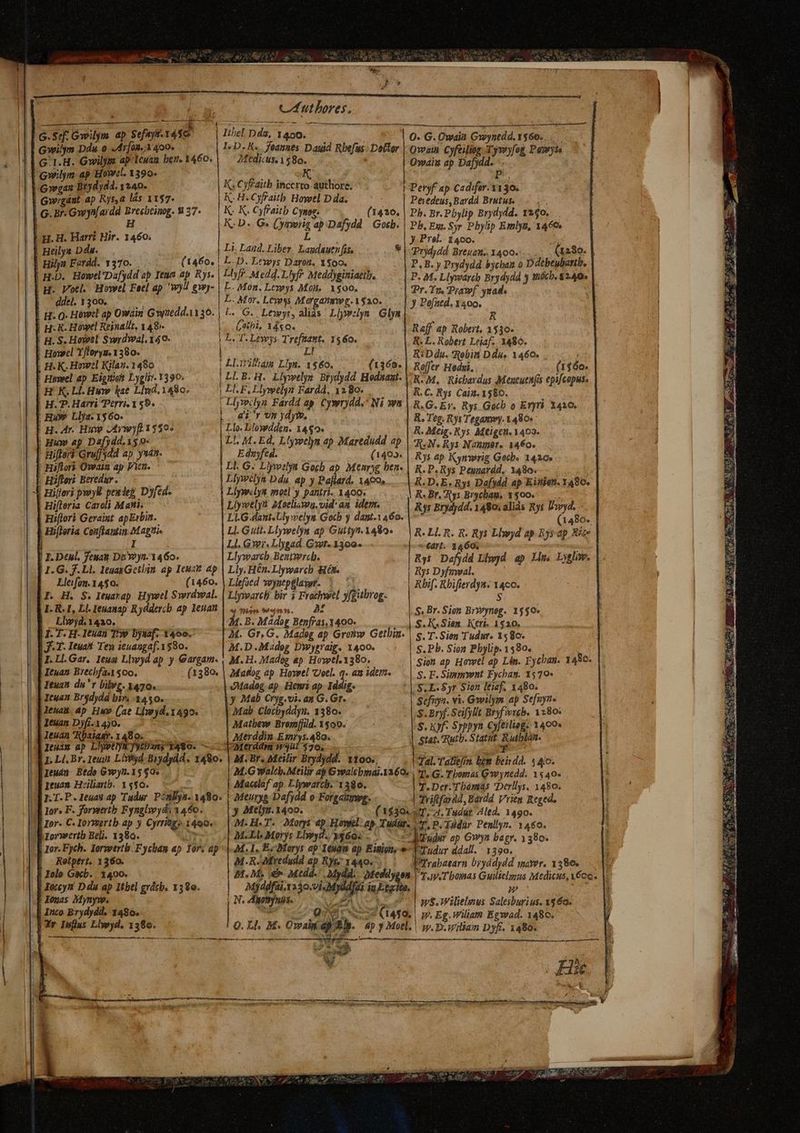 Authores.
G.Sef. Gwilym ap Sefnyn.1450
Gwilym Ddu o Arfon.1400.
G.I.H. Gwilym ap Ieuan hen.1460.
Gwilym ap Howel.1390.
Gwgan Brydydd.1240.
Gwrgant ap Rys,a las 1157.
G.Br.Gwynfardd Brecheinog.
H
H.H. Harri Hir. 1460.
Heilyn Ddu.
Hilyn Fardd. 1370. (1460.
H.D. Howel Dafydd ap Ieuan ap Rys.
H. Voel. Howel Foel ap
ddel. 1300.
H.O. Howel ap Owain Gwynedd.1130.
H.R. Howel Reinallt, 148.
H.S. Howel Swrdwal.
Howel Yftoryn.1380.
H.K. Howel Kilan.1480
Howel ap Eignion Lyglir.1390.
H K.Ll. Huw Kae Llwd.1480.
H.P. Harri Perri.
Huw Llyn.1560.
H.Ar. Huw Arwyftl
Huw ap Dafydd.
Hiftori Gruffydd ap ynan.
Hiftori Owain ap Vien.
Hiftori Beredur.
Hiftori pwyll pendeg Dyfed.
Hiftoria Caroli Mani.
Hiftori Geraint apErbin.
Hiftoria Conftantin Magni.
I
I.Deul. Ieuan Deulwyn.1460.
I.G.F.Ll. IeuanGethin ap Ieuan ap
Lleifon.1450. (1460.
I. H. S. Ieuanap Hywel Swrdwal.
I.R.I, Ll.Ieuanap Rydderch ap Ieuan
Llwyd.1420.
I.T.H. Ieuan Tew hynaf. 1400.
I.T. Ieuan Tew ieuangaf.1580.
I.Ll.Gar. Ieuan Llwyd ap y Gargam.
Ieuan Brechfa.1500. (1380,
Ieuan du'r bilwg.1470.
Ieuan Brydydd hir. 1450.
Ieuan ap Huw Cae Llwyd.1490.
Ieuan Dyfi.1420.
Ieuan Rhaiadr.1480.
Ieuan ap Llywelyn
I.Ll.Br.Ieuan Llwyd Brydydd. 1480.
Ieuan Bedo Gwyn.
Ieuan Heiliarth. 1550.
I.T.P. Ieuan ap Tudur Penllyn. 1480.
Ior.F. Iorwerth Fynglwyd. 1460.
Ior.C. Iorwerth ap y Cyrriog. 1400.
Iorwerth Beli. 1380.
Ior.Fych. Iorwerth Fychan ap Ior. ap
Rotpert. 1360.
Iolo Goch. 1400.
Ioccyn Ddu ap Ithel grdch. 1380.
Ionas Mynyw.
Inco Brydydd. 1480.
Yr Iuftus Llwyd. 1380.
Ithel Ddu, 1400.
I.D.R. Joannes Dauid Rhefus Doctor
Medicus.1580.
K
K.Cyfraith incerto authore.
K.H.Cyfraith Howel Dda.
K. K. Cyfraith Cynog. (1420,
K.D. G. Cynwrig ap Dafydd Goch.
L
Li.Land.Liber Landauenfis.
L.D. Lewys Daron. 1500.
Llyfr Medd.Llyfr Meddyginiaeth.
L. Mon. Lewys Mon. 1500.
L. Mor. Lewys Morgannwg.1520.
L. G. Lewys, alias Llywelyn Glyn
Cothi, 1450.
L. T. Lewys Trefnant. 1560.
Ll
Ll.William Llyn. 1560. (1360.
Ll B.H. Llywelyn Brydydd Hodnant.
Ll.F.Llywelyn Fardd. 1280.
Llywelyn Fardd ap Cywrydd. Ni wn
ai'r vn ydyw.
Llo.Llowdden. 1450.
Ll. M.Ed, Llywelyn ap Maredudd ap
Ednyfed. (1400.
Ll. G. Llywelyn Goch ap Meuryg hen.
Llywelyn Ddu ap y Paftard. 1400.
Llywelyn moel y pantri. 1400.
Llywelyn Moelrwn.vid' an idem.
Ll.G.dant.Llywelyn Goch y dant.1460.
Ll. Gutt.Llywelyn ap Guttyn.1480.
Ll. Gwr.Llygad Gwr.1300.
Llywarch Bentwrch.
Lly.Hên.Llywarch Hên.
Llefoed wynepglawr.
Llywarch bir i Frochwel yfgithrog.
M
M.B. Madog Benfras.1400.
M. Gr.G. Madog ap Gronw Gethin.
M.D.Madog Dwygraig. 1400.
M.H. Madog ap Howel.1380.
Madog ap Howel Voel. q. an idem.
Madog ap Henri ap Iddig.
y Mab Cryg.vi.an G.Gr.
Mab Clochyddyn. 1380.
Mathew Bromffild.1500.
Merddin Emrys.480.
Merddin wyllt 570.
M.Br.Meilir Brydydd. 1100.
M.G Walch.Meilir ap Gwalchmai.1260.
Maeslaf ap Llywarch. 1380.
Meuryg Dafydd o Forgannwg.
y Melyn.1400. (1530.
M.H.T. Morys ap Howel ap Tudur.
M.Ll. Morys Llwyd. 1560.
M. I. E. Morys ap Ieuan ap Einion.
M.R.Mredudd ap Rys. 1440.
M.M. Medd. Mydd. Meddygon
Myddfai.1230.vi.Myddfai in Lexico.
N. Anonymus.
O (1450.
O.Ll. M. Owain ap Ll. ap y Moel.
O. G. Owain Gwynedd.1560.
Owain Cyfeiliog Tywyfog Powys
Owain ap Dafydd.
P
Peryf ap Cadifor.1130.
Peredeus,Bardd Brutus.
Ph. Br.Phylip Brydydd. 1250.
Ph. Em. Syr Phylip Emlyn. 1460.
y Prol. 1400.
Prydydd Breuan. 1400. (1280.
P.B. y Prydydd bychan o Ddeheubarth.
P. M. Llywarch Brydydd y môch.1240.
Pr.Yn.Prawf ynad.
y Pofned. 1400.
R
Raff ap Robert. 1530.
R.L. Robert Leiaf. 1480.
RiDdu. Robin Ddu. 1460.
Roffer Hodni. (1560.
R.M. Richardus Meneuenfis epifcopus.
R.C. Rys Cain.1580.
R.G.Er. Rys Goch o Eryri 1420.
R.Teg.RysTeganwy.1480.
R.Meig.Rys Meigen.1400.
R.N. Rys Nanmor. 1460.
Rys ap Kynwrig Goch. 1420.
R.P.Rys Pennardd. 1480.
R.D.E.Rys Dafydd ap Einion.1480.
R.Br.Rys Brychan. 1500.
Rys Brydydd. 1480.alias Rys Llwyd.
(1480.
R.Ll.R. R. Rys Llwyd ap Rys ap
cart. 1460.
Rys Dafydd Llwyd ap Lln. Lygliw.
Rys Dyfnwal.
Rhif. Rhifierdyn. 1400.
S
S.Br.Sion Brwynog. 1550.
S.K.Sion Keri. 1520.
S.T.Sion Tudur. 1580.
S.Ph.Sion Phylip.1580.
Sion ap Howel ap Lln. Fychan. 1480.
S.F.Simmwnt Fychan. 1570.
S.L.Syr Sion leiaf. 1480.
Sefnyn. vi. Gwilym ap Sefnyn.
S.Bryf.Seifyllt Bryfwrch. 1280.
S.Kyf. Syppyn Cyfeiliog. 1400.
Stat.Ruth. Statut Ruthlan.
T
Tal.Taliefin ben beirdd. 540.
T.G.Thomas Gwynedd. 1540.
T.Der.Thomas Derllys. 1480.
Triffardd,Bardd Vrien Reged.
T.A.Tudur Aled. 1490.
T.P.Tudur Penllyn. 1460.
Tudur ap Gwyn hagr. 1380.
Tudur ddall. 1390.
Trahaearn bryddydd mawr. 1380.
T.W.Thomas Guilielmus Medicus,1600.
W
W.S.Wilielmus Salesburius. 1560.
W. Eg.Wiliam Egwad. 1480.
W.D.Wiliam Dyfi. 1480.
Hic